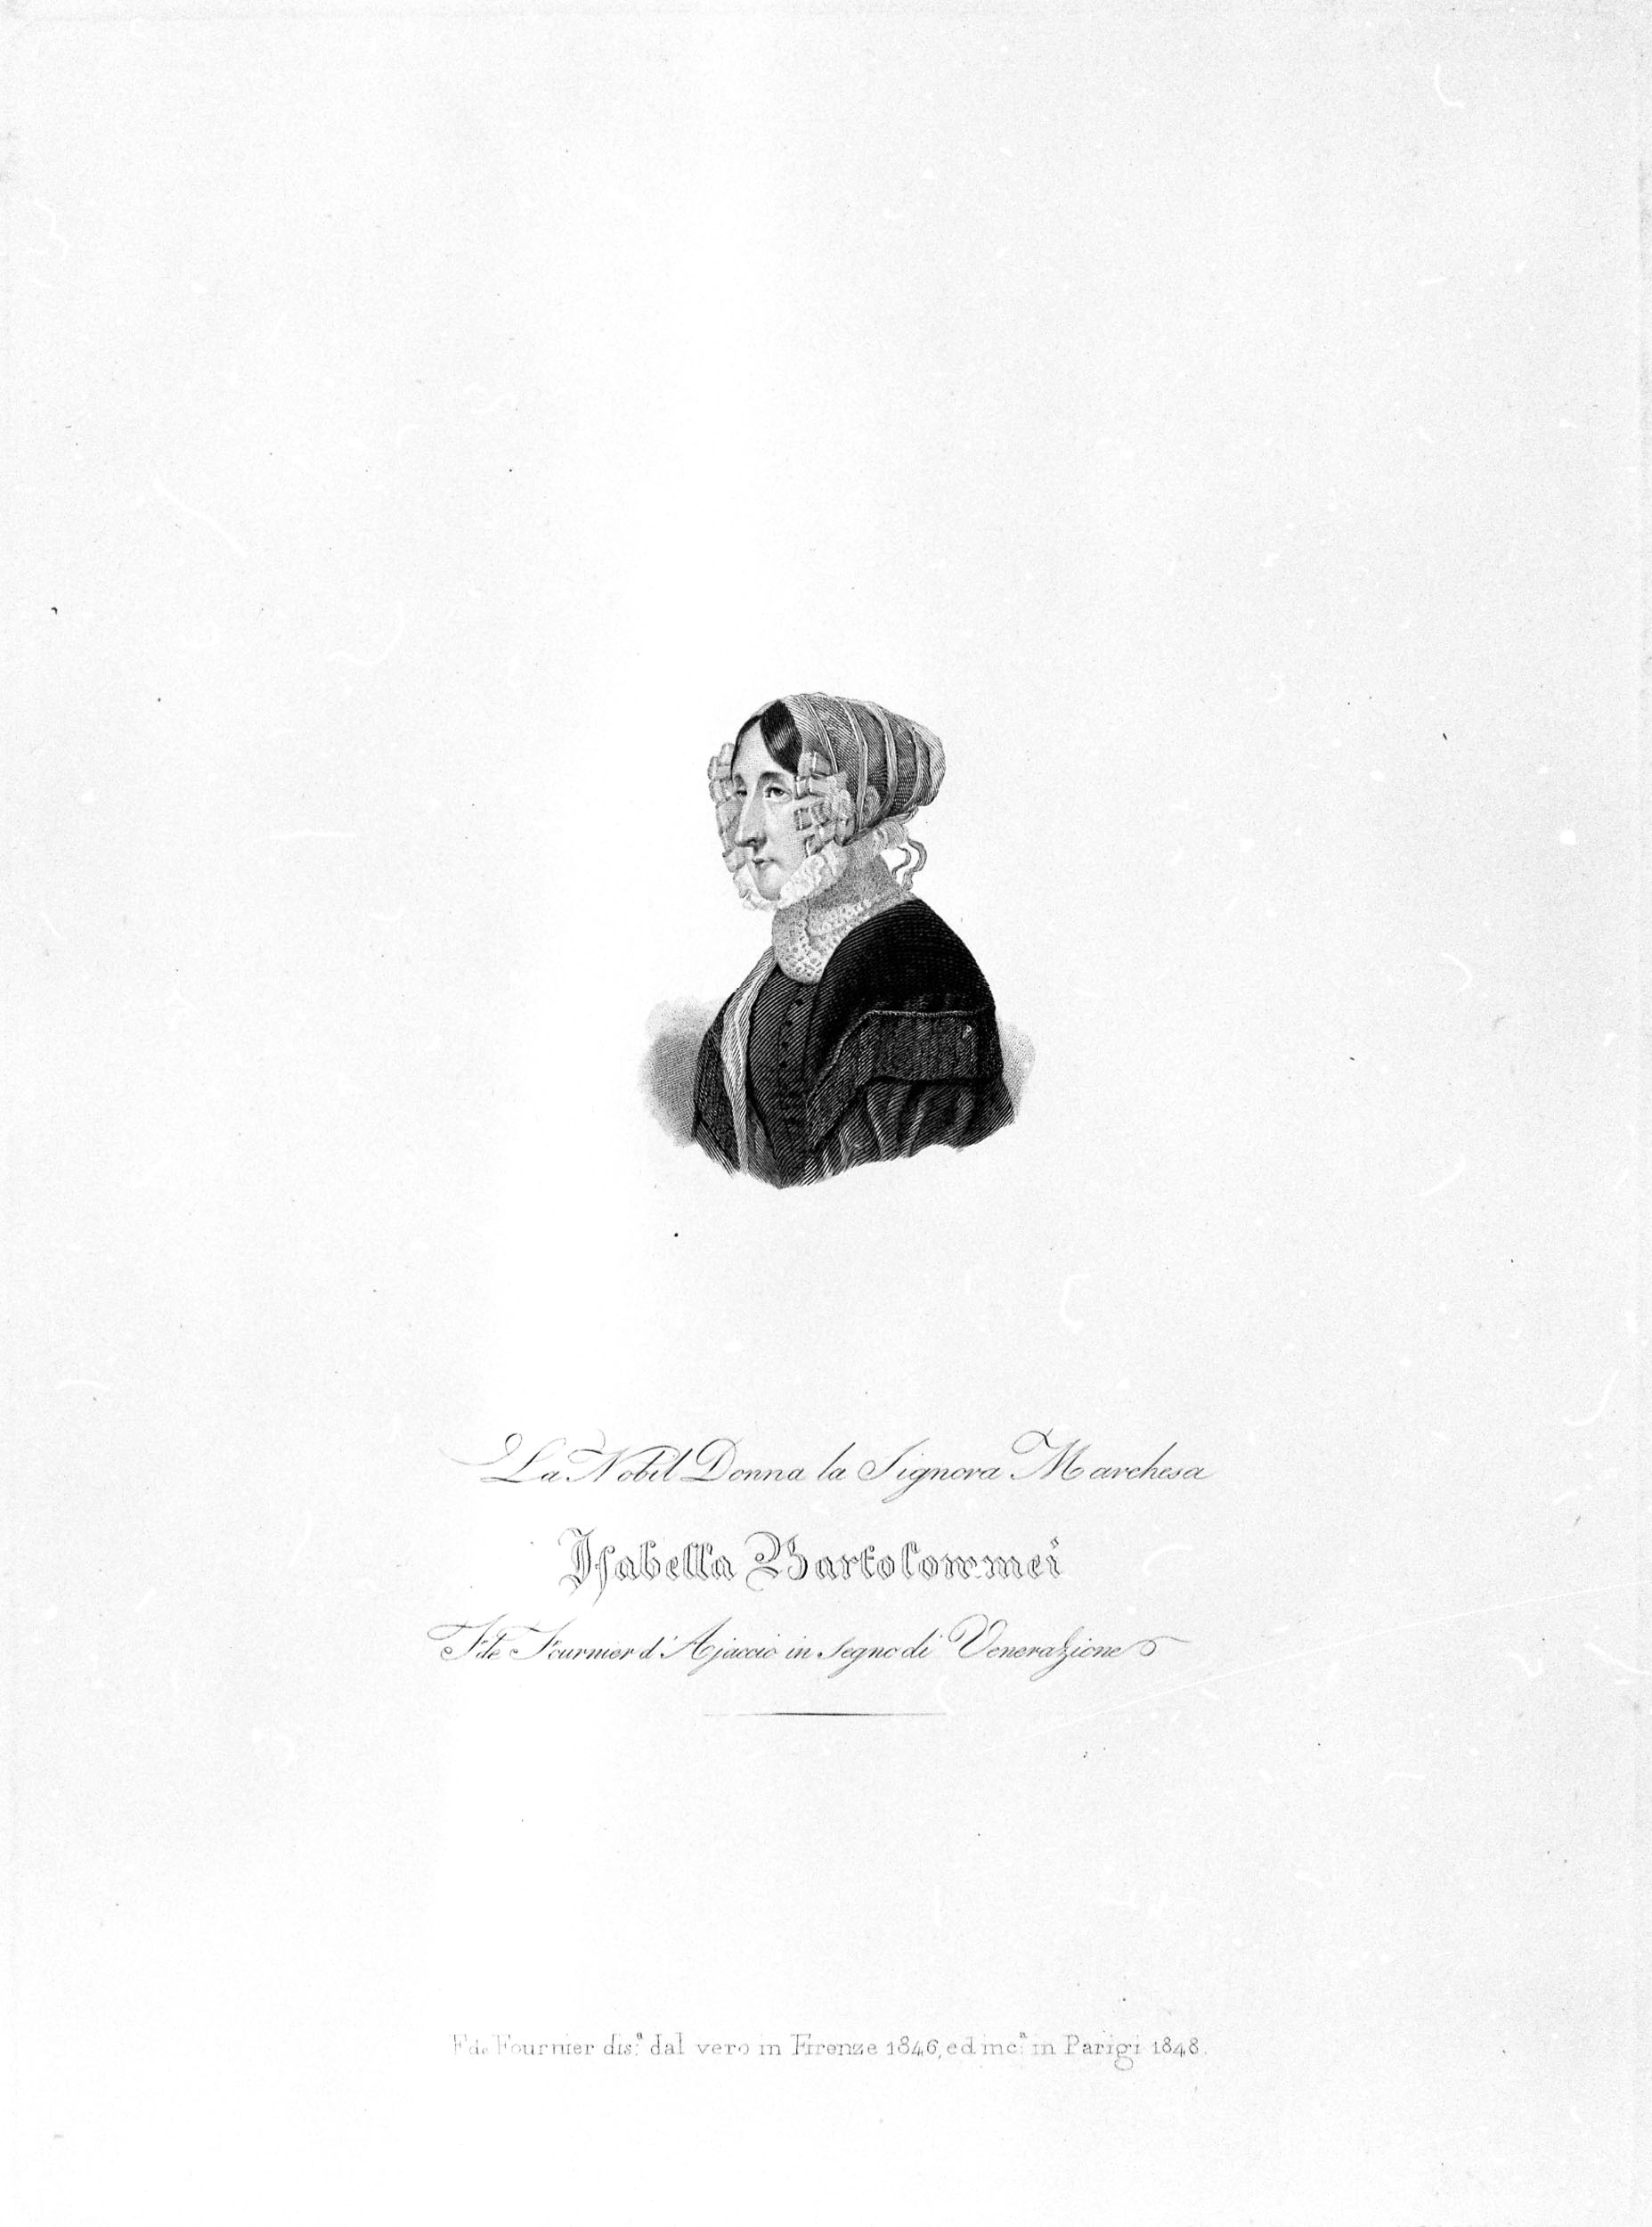 La Nobil Donna la Signora Marchesa
Isabella Bartolommei
F. de Fournier d'Ajaccio in segno di Venerazione
F. de Fournier dis.ª dal vero in Firenze 1846, ed inc.ª in Parigi 1848.